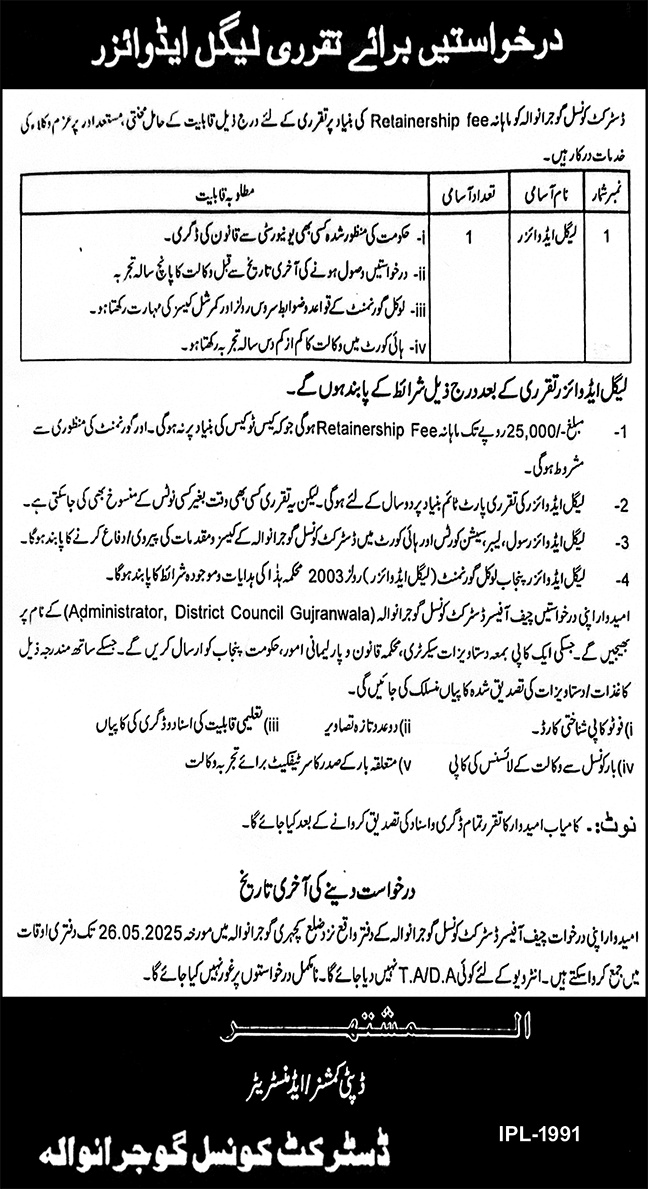 درخواستیں برائے تقرری لیگل ایڈوائزر
ڈسٹرکٹ کونسل گوجرانوالہ کو ماہانہ Retainership fee کی بنیاد پر تقرری کے لئے درج ذیل قابلیت کے حامل محنتی، مستعد اور پرعزم وکلاء کی
خدمات درکار ہیں۔
نمبر شمار نام آسامی تعداد آسامی مطلوبہ قابلیت
1 لیگل ایڈوائزر 1 i- حکومت کی منظور شدہ کسی بھی یونیورسٹی سے قانون کی ڈگری۔
ii- درخواستیں وصول ہونے کی آخری تاریخ سے قبل وکالت کا پانچ سالہ تجربہ
iii- لوکل گورنمنٹ کے قواعد و ضوابط سروس رولز اور کمرشل کیسز کی مہارت رکھتا ہو۔
iv- ہائی کورٹ میں وکالت کا کم از کم دس سالہ تجربہ رکھتا ہو۔
لیگل ایڈوائزر تقرری کے بعد درج ذیل شرائط کے پابند ہوں گے۔
1- مبلغ -/25,000 روپے تک ماہانہ Retainership Fee ہوگی جو کہ کیس ٹو کیس کی بنیاد پر نہ ہوگی۔ اور گورنمنٹ کی منظوری سے
مشروط ہوگی۔
2- لیگل ایڈوائزر کی تقرری پارٹ ٹائم بنیاد پر دو سال کے لئے ہوگی۔ لیکن یہ تقرری کسی بھی وقت بغیر کسی نوٹس کے منسوخ بھی کی جاسکتی ہے۔
3- لیگل ایڈوائزر سول، لیبر، سیشن کورٹس اور ہائی کورٹ میں ڈسٹرکٹ کونسل گوجرانوالہ کے کیسز و مقدمات کی پیروی/دفاع کرنے کا پابند ہوگا۔
4- لیگل ایڈوائزر پنجاب لوکل گورنمنٹ (لیگل ایڈوائزر) رولز 2003 محکمہ ہذا کی ہدایات و موجودہ شرائط کا پابند ہوگا۔
امیدوار اپنی درخواستیں چیف آفیسر ڈسٹرکٹ کونسل گوجرانوالہ (Administrator, District Council Gujranwala) کے نام پر
بھیجیں گے۔ جسکی ایک کاپی بمعہ دستاویزات سیکرٹری، محکمہ قانون و پارلیمانی امور، حکومت پنجاب کو ارسال کریں گے۔ جسکے ساتھ مندرجہ ذیل
کاغذات/دستاویزات کی تصدیق شدہ کاپیاں منسلک کی جائیں گی۔
i) فوٹو کاپی شناختی کارڈ۔ ii) دو عدد تازہ تصاویر iii) تعلیمی قابلیت کی اسناد و ڈگری کی کاپیاں
iv) بار کونسل سے وکالت کے لائسنس کی کاپی v) متعلقہ بار کے صدر کا سرٹیفکیٹ برائے تجربہ وکالت
نوٹ:۔ کامیاب امیدوار کا تقرر تمام ڈگری و اسناد کی تصدیق کروانے کے بعد کیا جائے گا۔
درخواست دینے کی آخری تاریخ
امیدوار اپنی درخوات چیف آفیسر ڈسٹرکٹ کونسل گوجرانوالہ کے دفتر واقع نزد ضلع کچہری گوجرانوالہ میں مورخہ 26.05.2025 تک دفتری اوقات
میں جمع کرواسکتے ہیں۔ انٹرویو کے لئے کوئی T.A/D.A نہیں دیا جائے گا۔ نامکمل درخواستوں پر غور نہیں کیا جائے گا۔
المشتہر
ڈپٹی کمشنر/ایڈمنسٹریٹر
ڈسٹرکٹ کونسل گوجرانوالہ
IPL-1991